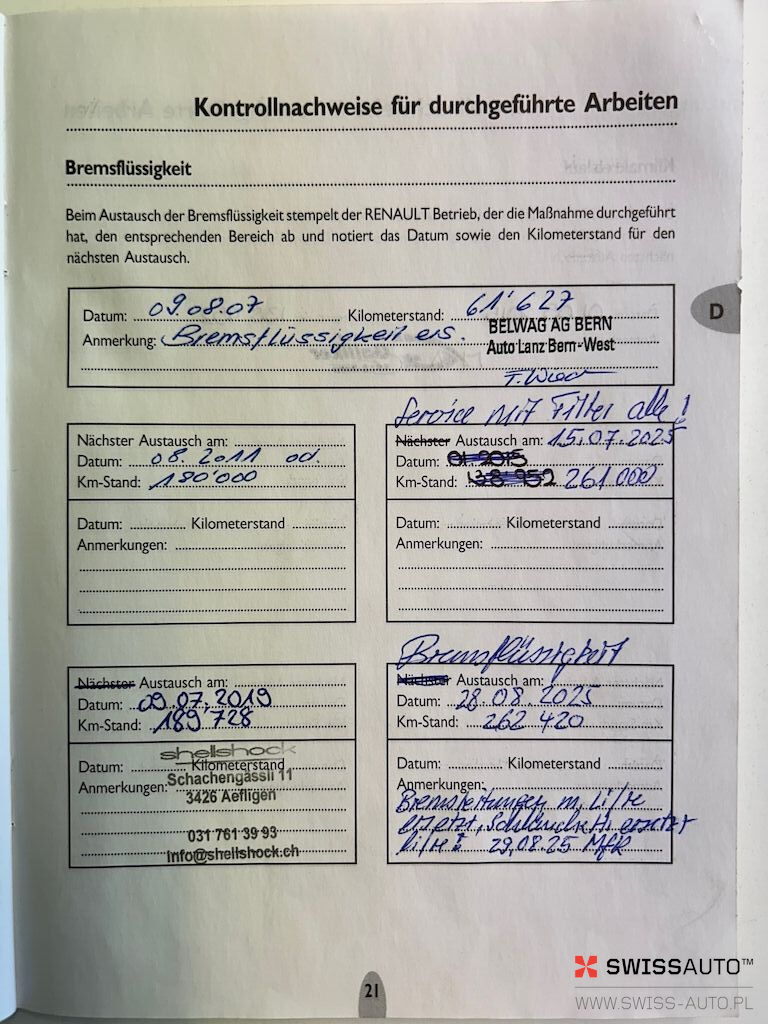 Kontrollnachweise für durchgeführte Arbeiten
Bremsflüssigkeit
Beim Austausch der Bremsflüssigkeit stempelt der RENAULT Betrieb, der die Maßnahme durchgeführt
hat, den entsprechenden Bereich ab und notiert das Datum sowie den Kilometerstand für den
nächsten Austausch.
Datum: 09.08.07 Kilometerstand: 61'627
D
Anmerkung: Bremsflüssigkeit ers.
BELWAG AG BERN
Auto Lanz Bern-West
Service mit Filter alle!
Nächster Austausch am:
Datum: 08.2011 od.
Km-Stand: 180'000
Datum: Kilometerstand
Anmerkungen:
Nächster Austausch am: 15.07.2025
Datum: 01.2015
Km-Stand: 261000
Datum: Kilometerstand
Anmerkungen:
Nächster Austausch am:
Datum: 09.07.2019
Km-Stand: 189 728
Datum: Kilometerstand
Anmerkungen:
shellshock
Schachengässli 11
3426 Aefligen
031 761 39 93
info@shellshock.ch
Bremsflüssigkeit
Nächster Austausch am:
Datum: 28.08.2025
Km-Stand: 262 420
Datum: Kilometerstand
Anmerkungen:
Bremsleitungen m. li/re
ersetzt, ersetzt
li/re 29.08.25
21
SWISSAUTO™
WWW.SWISS-AUTO.PL